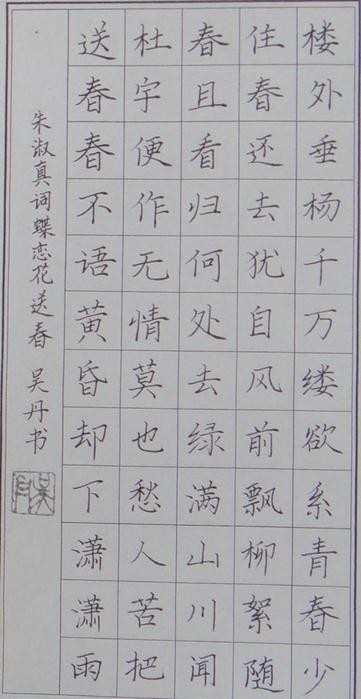 楼外垂杨千万缕欲系青春少
住春还去犹自风前飘柳絮随
春且看归何处去绿满山川闻
杜宇便作无情莫也愁人苦把
送春春不语黄昏却下潇潇雨
朱淑真词蝶恋花送春 吴丹书